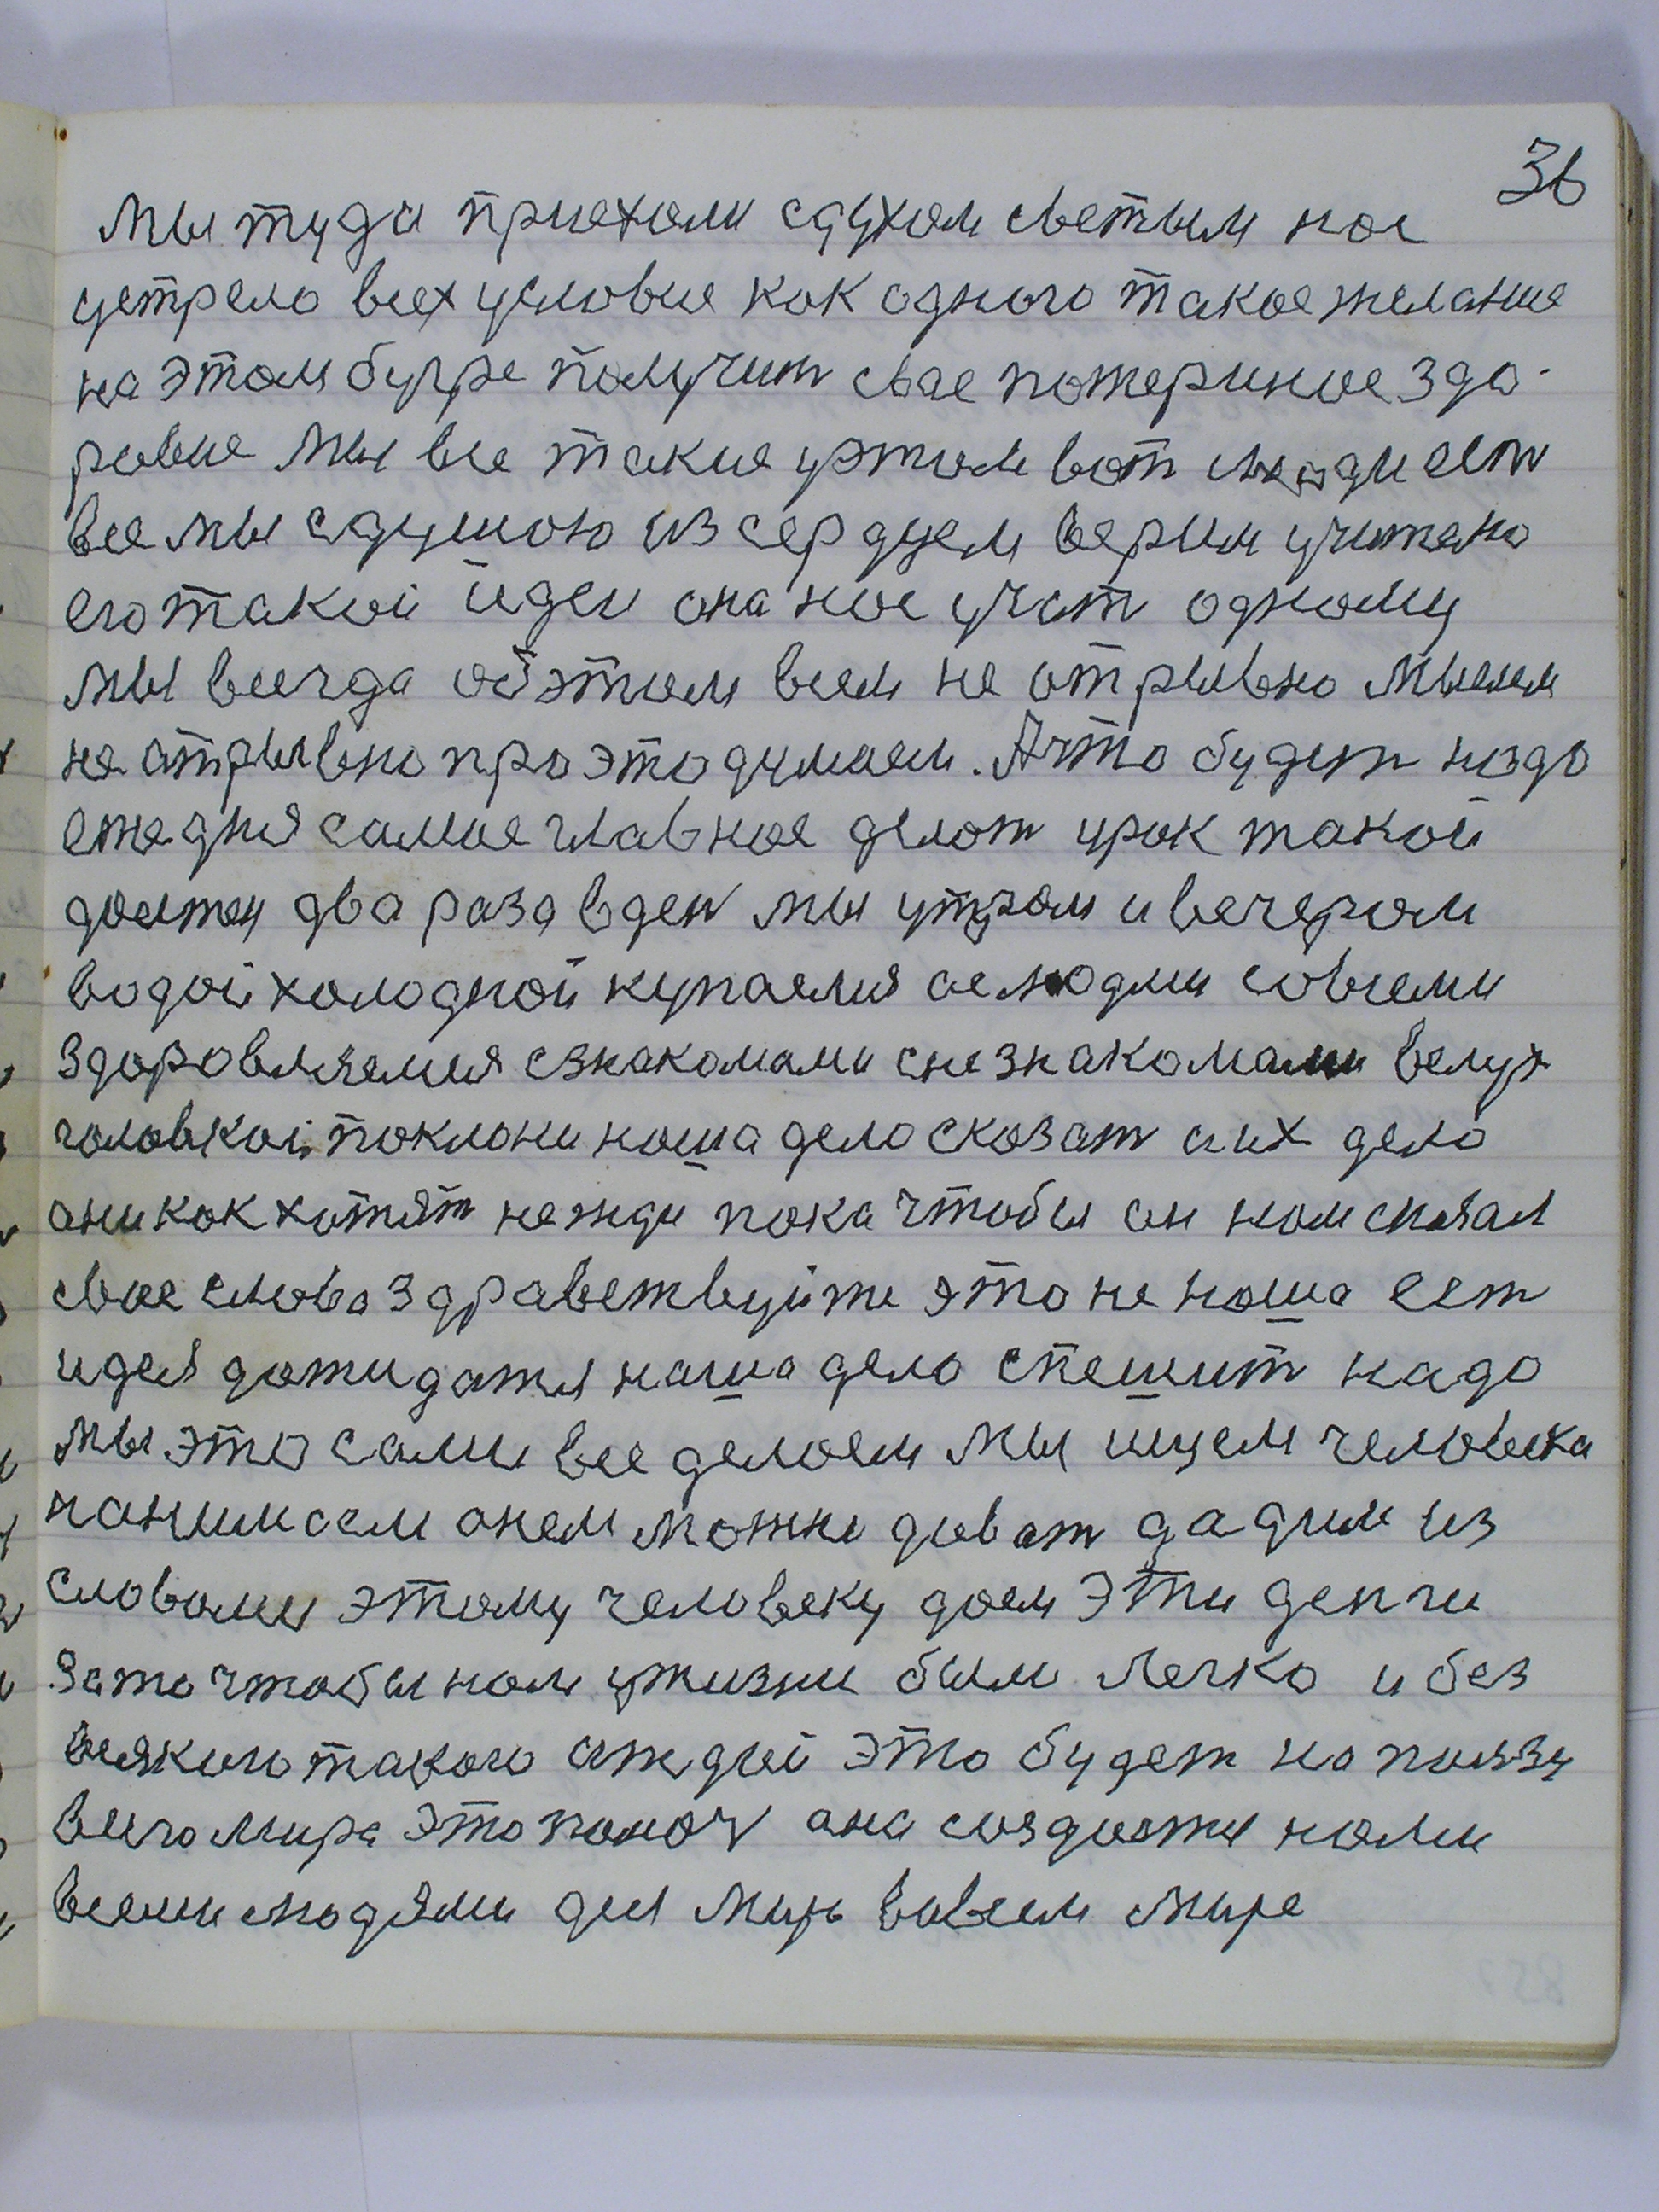 36
Мы туда приехали сдухом светым нас
устрело всех условие как одного такое желание
на этом бугре получит свае потериное здо-
ровие Мы все такие уэтом вот люди ест
все мы сдушою из сердцем верим учителю
его такой идеи она нас учит одному
мы всегда обэтом всем не отрывно мыслем
не отрывно про это думаем. А что будет надо
ежедня самае главное делат урок такой
достац два раза вден мы утром и вечером
водой холодной купаемся селюдми совсеми
здоровляемся сзнакомами снезнакомами велух
головкой поклони наша дело сказат аих дело
они как хотят не жди пока чтобы он нам сказал
свае слова здраветвуйте это не наша ест
идея дожидатся наша дело спешит надо
мы это сами все делаем мы ищем человека
нанимаем онем можно дават дадим из
словами этому человеку даем эти денги
зато чтобы нам ужизни были легко и без
всякого такого аждей это будет на ползу
всего мира это помоч она создастся нами
всеми людями для мир вовсем мире